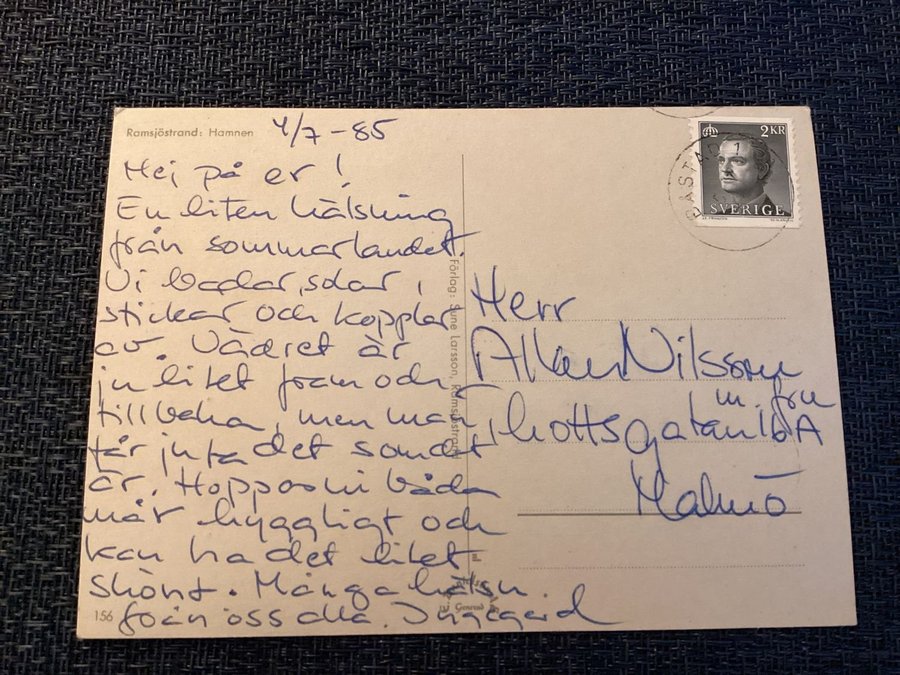 Ramsjöstrand: Hamnen
4/7-85
Hej på er!
En liten hälsning
från sommarlandet.
Vi badar, solar,
stickar och kopplar
av. Vädret är
ju litet fram och
tillbaka, men man
får ju ta det som det
är. Hoppas ni båda
mår hyggligt och
kan ha det litet
skönt. Många hälsn
från oss alla. Ingegärd
156
Förlag: Sune Larsson, Ramsjöstrand
BÅSTAD 1
2 KR
SVERIGE
Herr
Allan Nilsson
m. fru
gatan 16 A
Malmö